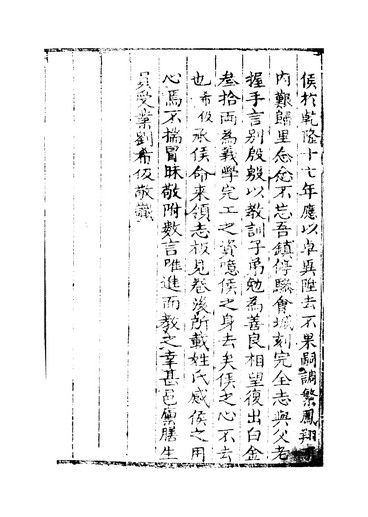 侯於乾隆十七年應以卓異陞去不果嗣調繁鳳翔
内艱歸里念念不忘吾鎮停驂會城刻完全志與父老
握手言别殷殷以教訓子弟勉為善良相望復出白金
叁拾两為義學完工之資噫侯之身去矣侯之心不去
也希伋承侯命來領志板見卷後所載姓氏感侯之用
心焉不揣冒昧敬附數言唯進而教之幸甚邑廩膳生
員受業劉希伋敬識